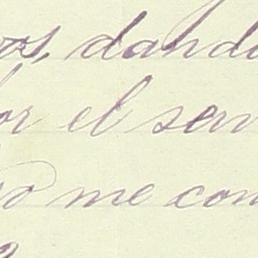 os, dando
or el serv
o me com